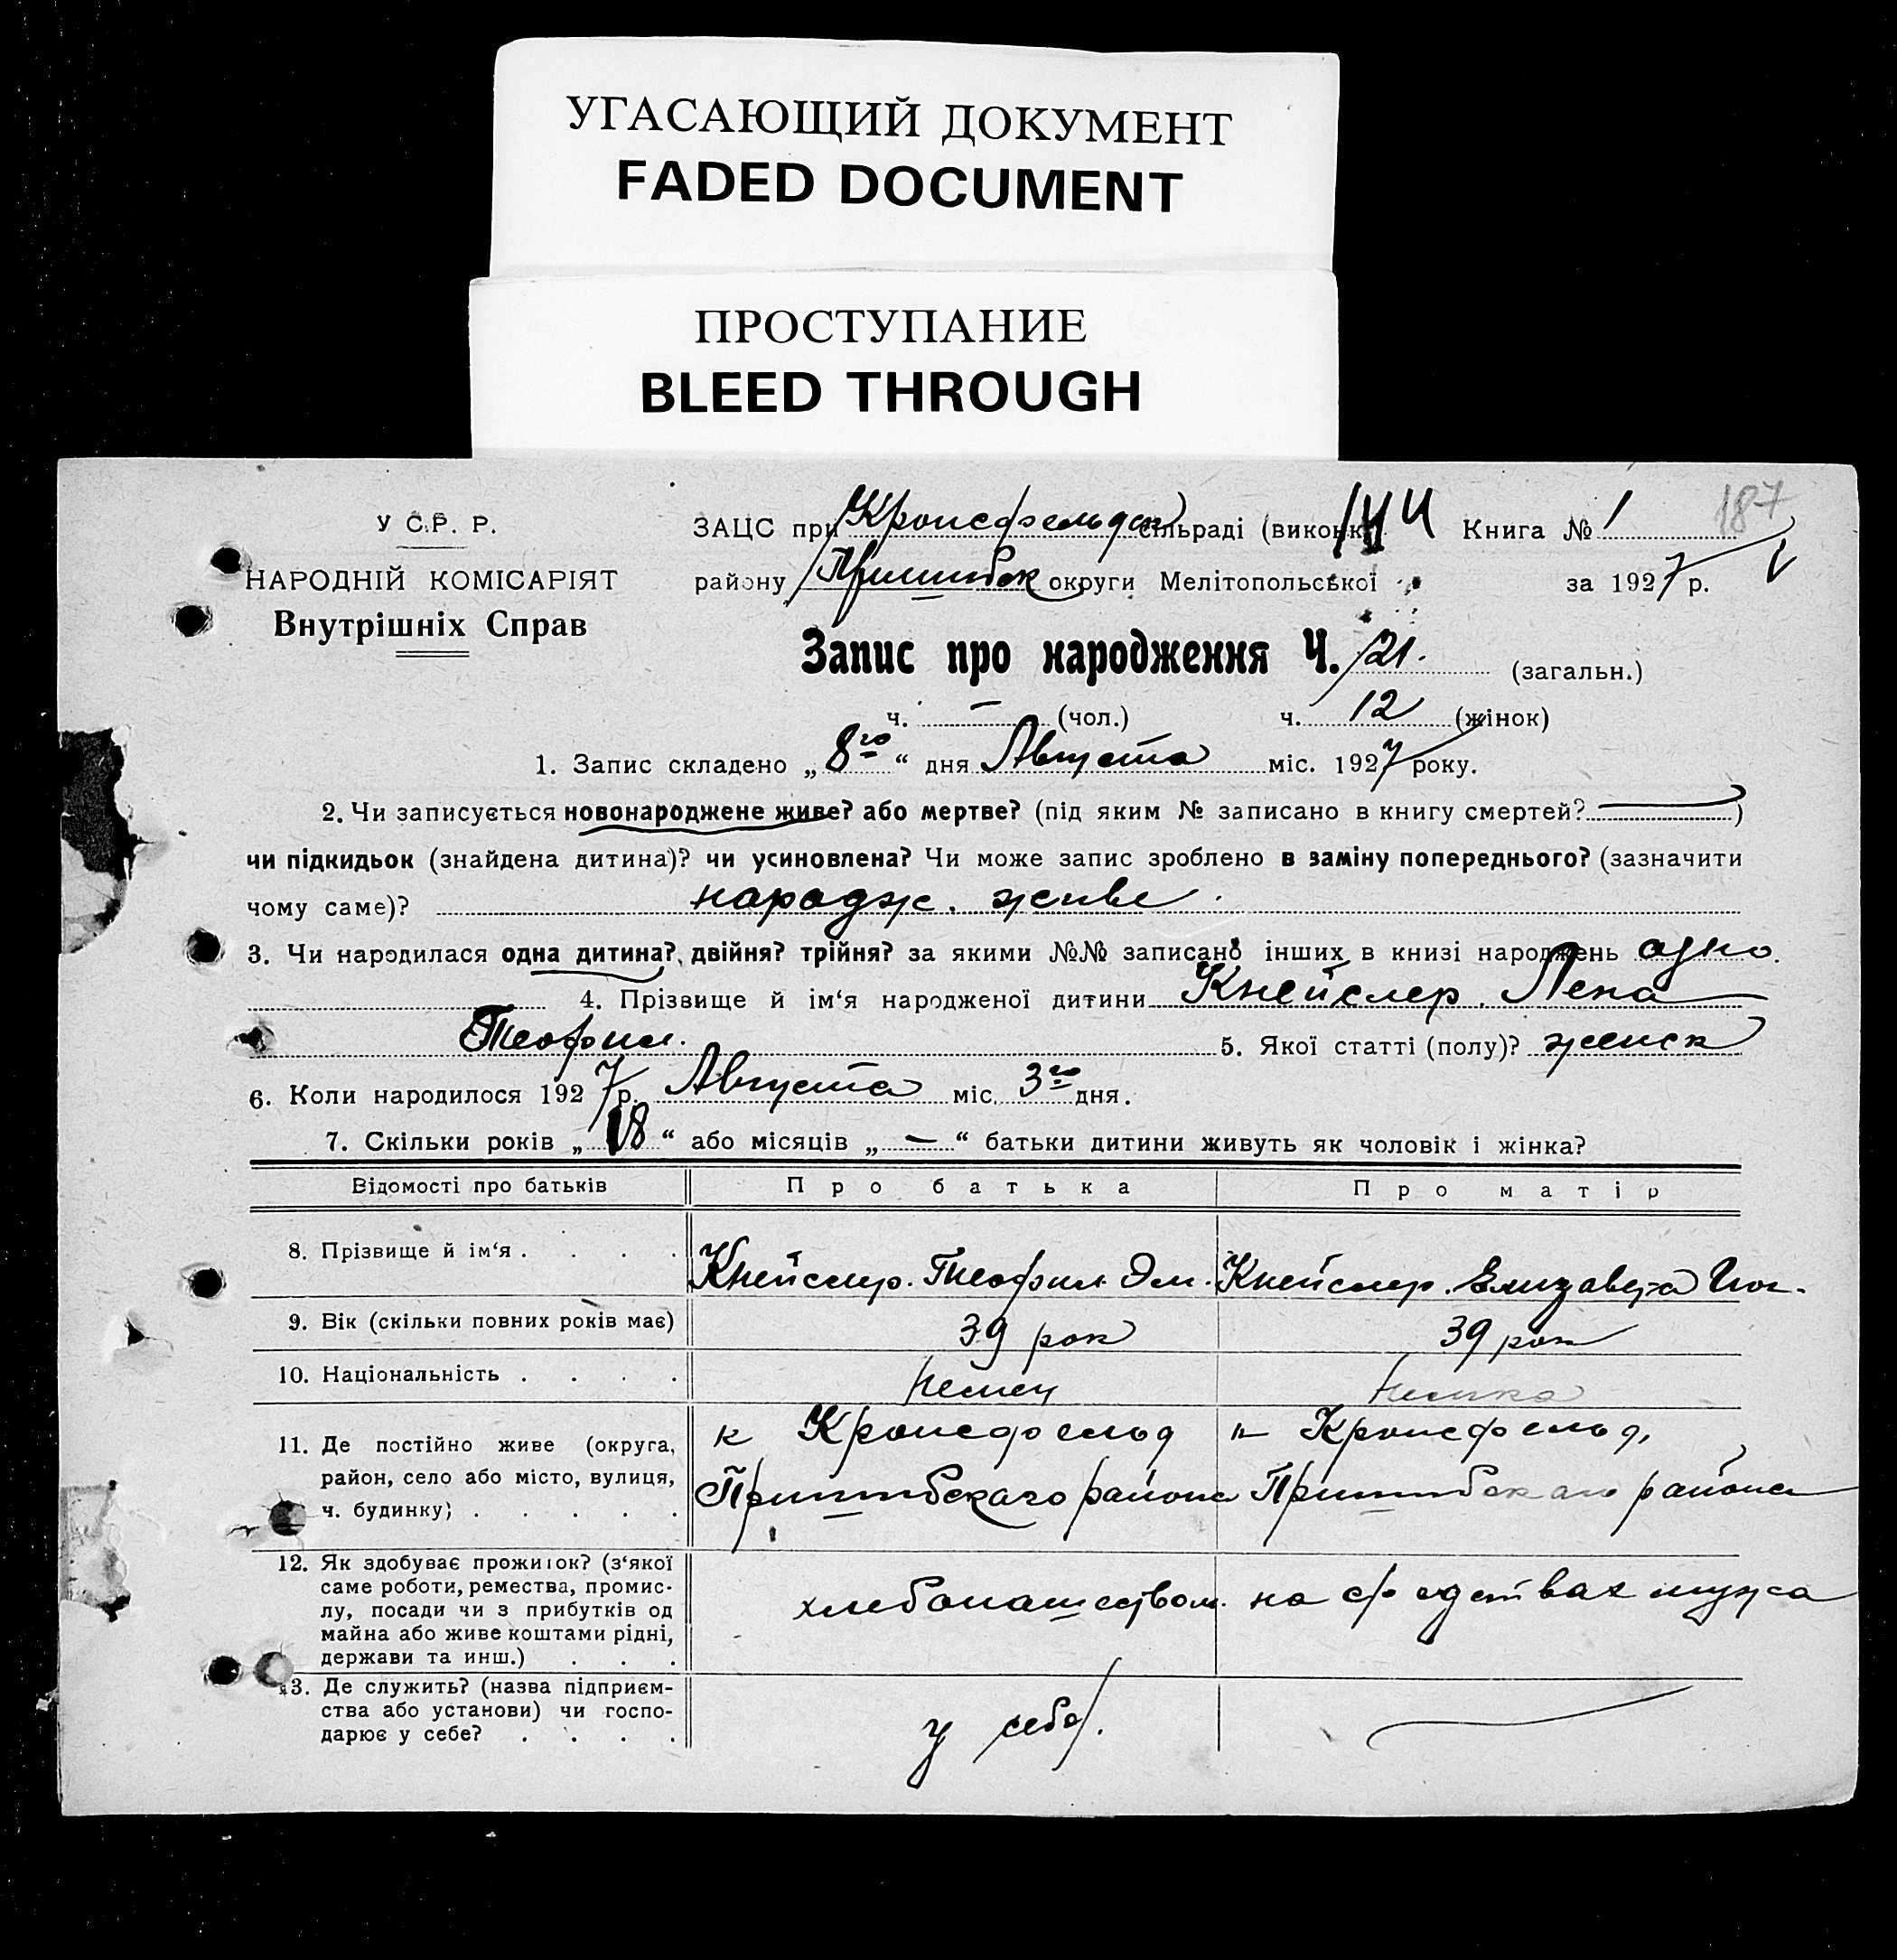 УГАСАЮЩИЙ ДОКУМЕНТ
FADED DOCUMENT
ПРОСТУПАНИЕ
BLEED THROUGH
187
У С.Р. Р.
НАРОДНІЙ КОМІСАРІЯТ
Внутрішніх Справ
ЗАЦС при Кронсфельдск сільраді (виконк Книга № 1
району Пришибск округи Мелітопольської за 1927 р.
Запис про народження Ч. 21. (загальн.)
ч. — (чол.) ч. 12 (жінок)
1. Запис складено „ 8го “ дня Августа міс. 1927 року.
2. Чи записується новонароджене живе? або мертве? (під яким № записано в книгу смертей? — )
чи підкидьок (знайдена дитина)? чи усиновлена? Чи може запис зроблено в заміну попереднього? (зазначити
чому саме)? народж. живе
3. Чи народилася одна дитина? двійня? трійня? за якими №№ записано інших в книзі народжень одно.
4. Прізвище й ім‘я народженої дитини Кнейслер. Лена
Теофил. 5. Якої статті (полу)? женск
6. Коли народилося 1927 р. Августа міс. 3го дня.
7. Скільки років „ 18 “ або місяців „ — “ батьки дитини живуть як чоловік і жінка?
Відомості про батьків Про батька Про матір
8. Прізвище й ім‘я . . . . Кнейслер. Теофил Эм. Кнейслер. Елизавета Иог.
9. Вік (скільки повних років має) 39 рок 39 рок
10. Національність . . . . Немец Немка
11. Де постійно живе (округа, район, село або місто, вулиця, ч. будинку; . . . . .
к Кронсфельд к Кронсфельд,
Пришибскаго района Пришибскаго района
12. Як здобуває прожиток? (з‘якої
саме роботи, ремества, промис-
лу, посади чи з прибутків од
майна або живе коштами рідні,
держави та инш.) . . .
хлебопашеством. на средствах мужа
13. Де служить? (назва підприєм-
ства або установи) чи госпо-
дарює у себе? . . . .
у себе. —